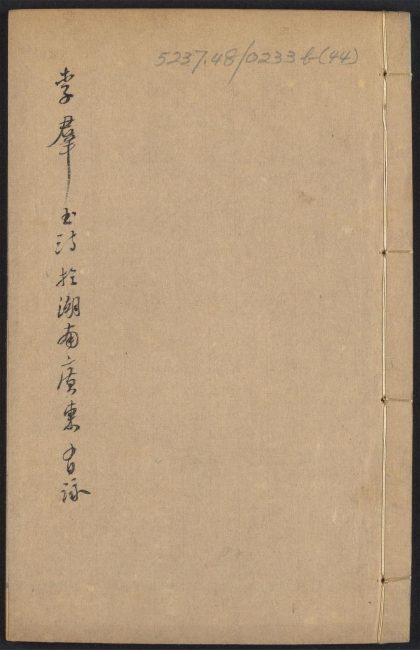 5237.48/0233 b(44)
李羣玉詩於湖南廣東有詠